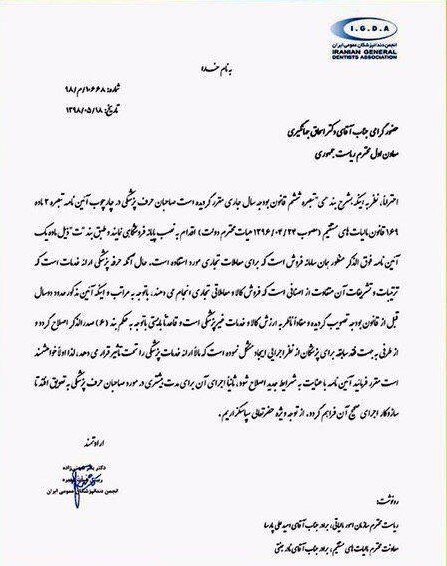 I.G.D.A
انجمن دندانپزشکان عمومی ایران
IRANIAN GENERAL
DENTISTS ASSOCIATION
به نام خدا
شماره: ۱۰۶۶۸/م/۹۸
تاریخ: ۱۳۹۸/۰۵/۱۸
حضور گرامی جناب آقای دکتر اسحاق جهانگیری
معاون اول محترم ریاست جمهوری
احتراما، نظر به اینکه بشرح بند سی تبصره ششم قانون بودجه سال جاری مقرر گردیده است صاحبان حرف پزشکی در چارچوب آئین نامه تبصره ۲ ماده
۱۶۹ قانون مالیات های مستقیم (مصوب ۱۳۹۶/۰۴/۲۴ هیات محترم دولت) اقدام به نصب پایانه فروشگاهی نمایند و طبق بند "ت" ذیل ماده یک
آئین نامه فوق الذکر منظور همان سامانه فروش است که برای معاملات تجاری مورد استفاده است. حال آنکه حرفه پزشکی ارائه خدمات است که
ترتیبات و تشریفات آن متفاوت از اصنافی است که فروش کالا و معاملاتی تجاری انجام می دهند، باتوجه به مراتب و اینکه آئین مذکور حدود دو سال
قبل از قانون بودجه تصویب گردیده و مفاد آن ناظر به ارزش کالا و خدمات غیر پزشکی است و قاعدتا بایستی باتوجه به حکم بند (۶) صدرالذکر اصلاح گردد و
از طرفی به جهت فقد سابقه برای پزشکان از نظر اجرایی ایجاد مشکل نموده است که مالا ارائه خدمات پزشکی را تحت تأثیر قرار می دهد، لذا اولاً خواهشمند
است مقرر فرمائید آئین نامه با عنایت به شرایط جدید اصلاح شود، ثانیاً اجرای آن برای مدت بیشتری در مورد صاحبان حرف پزشکی به تعویق افتد تا
سازوکار اجرای صحیح آن فراهم گردد. از توجه ویژه حضرتعالی سپاسگزاریم.
ارادتمند
دکتر
انجمن دندانپزشکان عمومی ایران
رونوشت:
ریاست محترم سازمان امور مالیاتی، برادر جناب آقای امید علی پارسا
معاونت محترم مالیات های مستقیم، برادر جناب آقای نادر جنتی